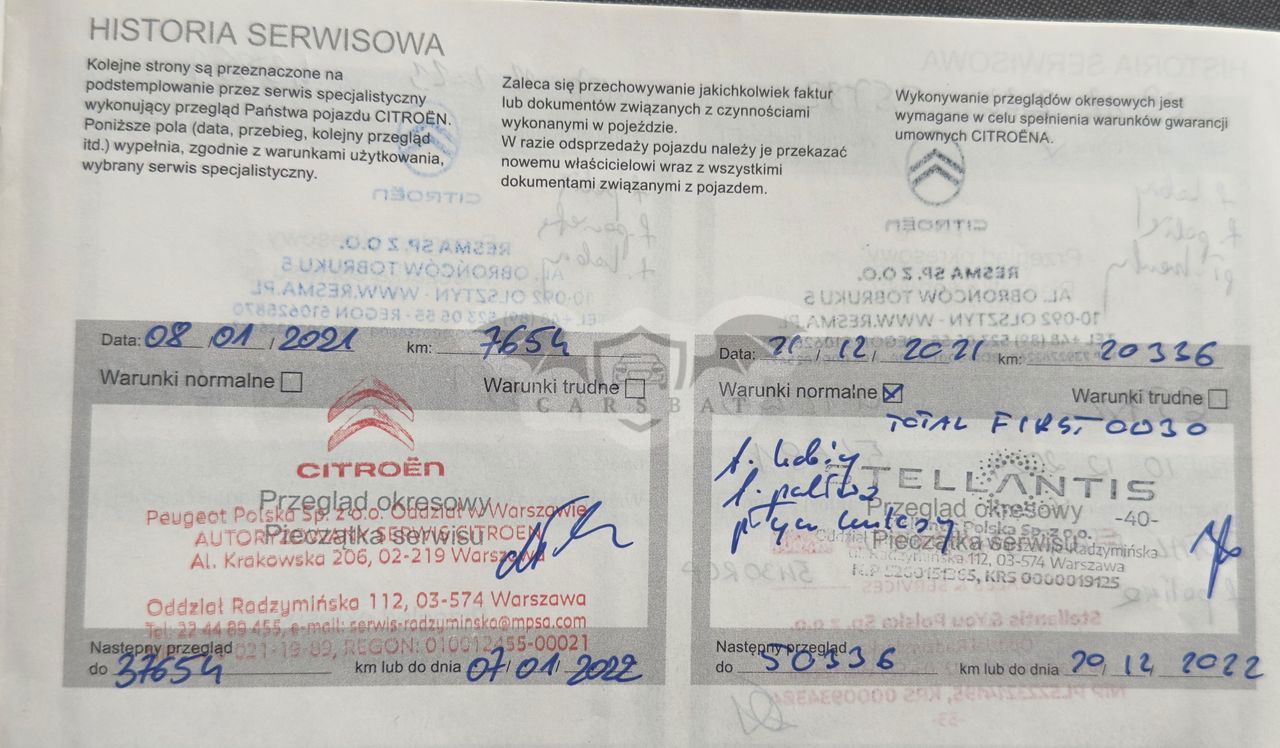 HISTORIA SERWISOWA
Kolejne strony są przeznaczone na
podstemplowanie przez serwis specjalistyczny
wykonujący przegląd Państwa pojazdu CITROËN.
Poniższe pola (data, przebieg, kolejny przegląd
itd.) wypełnia, zgodnie z warunkami użytkowania,
wybrany serwis specjalistyczny.
Zaleca się przechowywanie jakichkolwiek faktur
lub dokumentów związanych z czynnościami
wykonanymi w pojeździe.
W razie odsprzedaży pojazdu należy je przekazać
nowemu właścicielowi wraz z wszystkimi
dokumentami związanymi z pojazdem.
Wykonywanie przeglądów okresowych jest
wymagane w celu spełnienia warunków gwarancji
umownych CITROËNA.
Data: 08/01/2021 km: 7654
Warunki normalne Warunki trudne
CITROËN
Przegląd okresowy
Peugeot Polska Sp. z o.o. Oddział w Warszawie
Pieczątka serwisu
AUTORYZOWANY SERWIS CITROEN
Al. Krakowska 206, 02-219 Warszawa
Oddział Radzymińska 112, 03-574 Warszawa
Tel: 22 44 89 455, e-mail: serwis-radzyminska@mpsa.com
021-19-89, REGON: 010012455-00021
Następny przegląd
do 37654 km lub do dnia 07/01/2022
CARSBAT
Data: 21/12/2021 km: 20336
Warunki normalne Warunki trudne
TOTAL FIRST 0030
STELLANTIS
Przegląd okresowy
-40-
Polska Sp. z o.o.
Pieczątka serwisu
Radzymińska
112, 03-574 Warszawa
KRS 0000019125
Następny przegląd
do 50336 km lub do dnia 20/12/2022